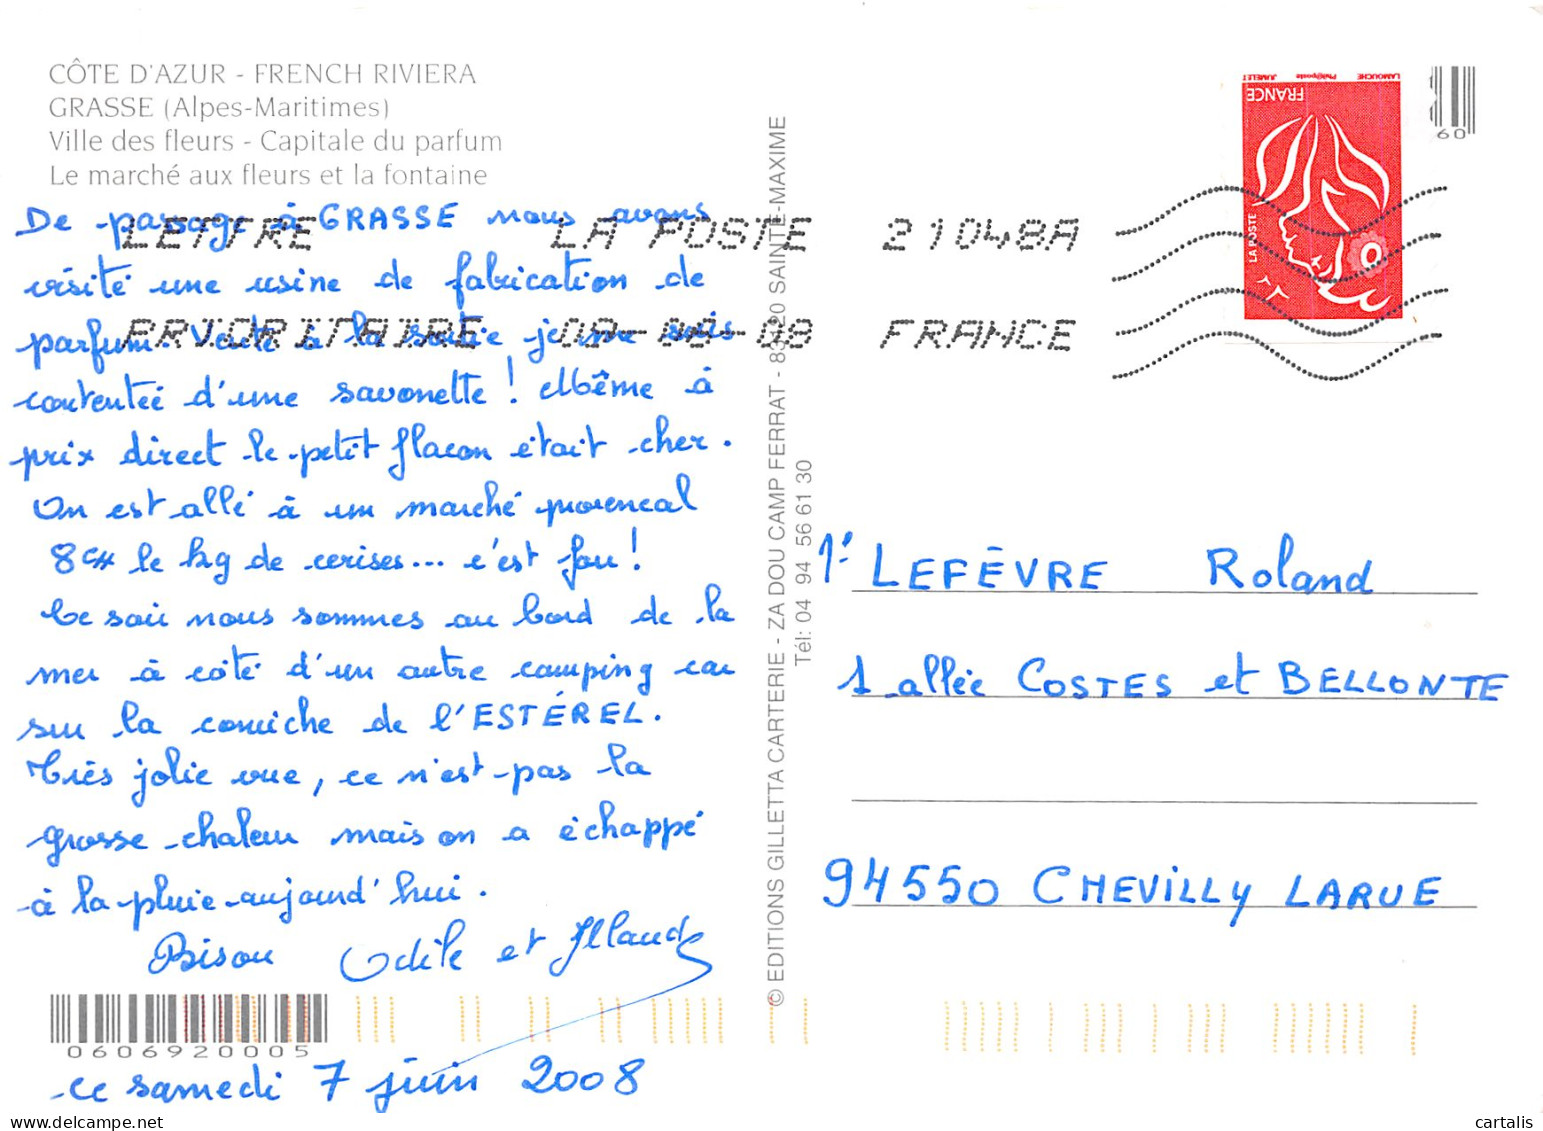 CÔTE D'AZUR - FRENCH RIVIERA
GRASSE (Alpes-Maritimes)
Ville des fleurs - Capitale du parfum
Le marché aux fleurs et la fontaine
De passage à GRASSE nous avons
visité une usine de fabrication de
parfum. à la sortie je me suis
contentée d'une savonette ! Même à
prix direct le petit flacon était cher.
On est allé à un marché provencal
8 le kg de cerises... c'est fou !
Ce soir nous sommes au bord de la
mer à côté d'un autre camping car
sur la corniche de l'ESTÉREL.
Très jolie vue, ce n'est pas la
grosse chaleur mais on a échappé
à la pluie aujourd'hui.
Bisou Odile et
ce samedi 7 juin 2008
0606920005
© EDITIONS GILLETTA CARTERIE - ZA DOU CAMP FERRAT - 83120 SAINTE-MAXIME
Tél: 04 94 56 61 30
LETTRE LA POSTE 21048A
PRIORITAIRE 09-06-08 FRANCE
LAMOUCHE Phil@poste JUMELET
FRANCE
LA POSTE
60
LEFÈVRE Roland
1 allée COSTES et BELLONTE
94550 CHEVILLY LARUE
cartalis